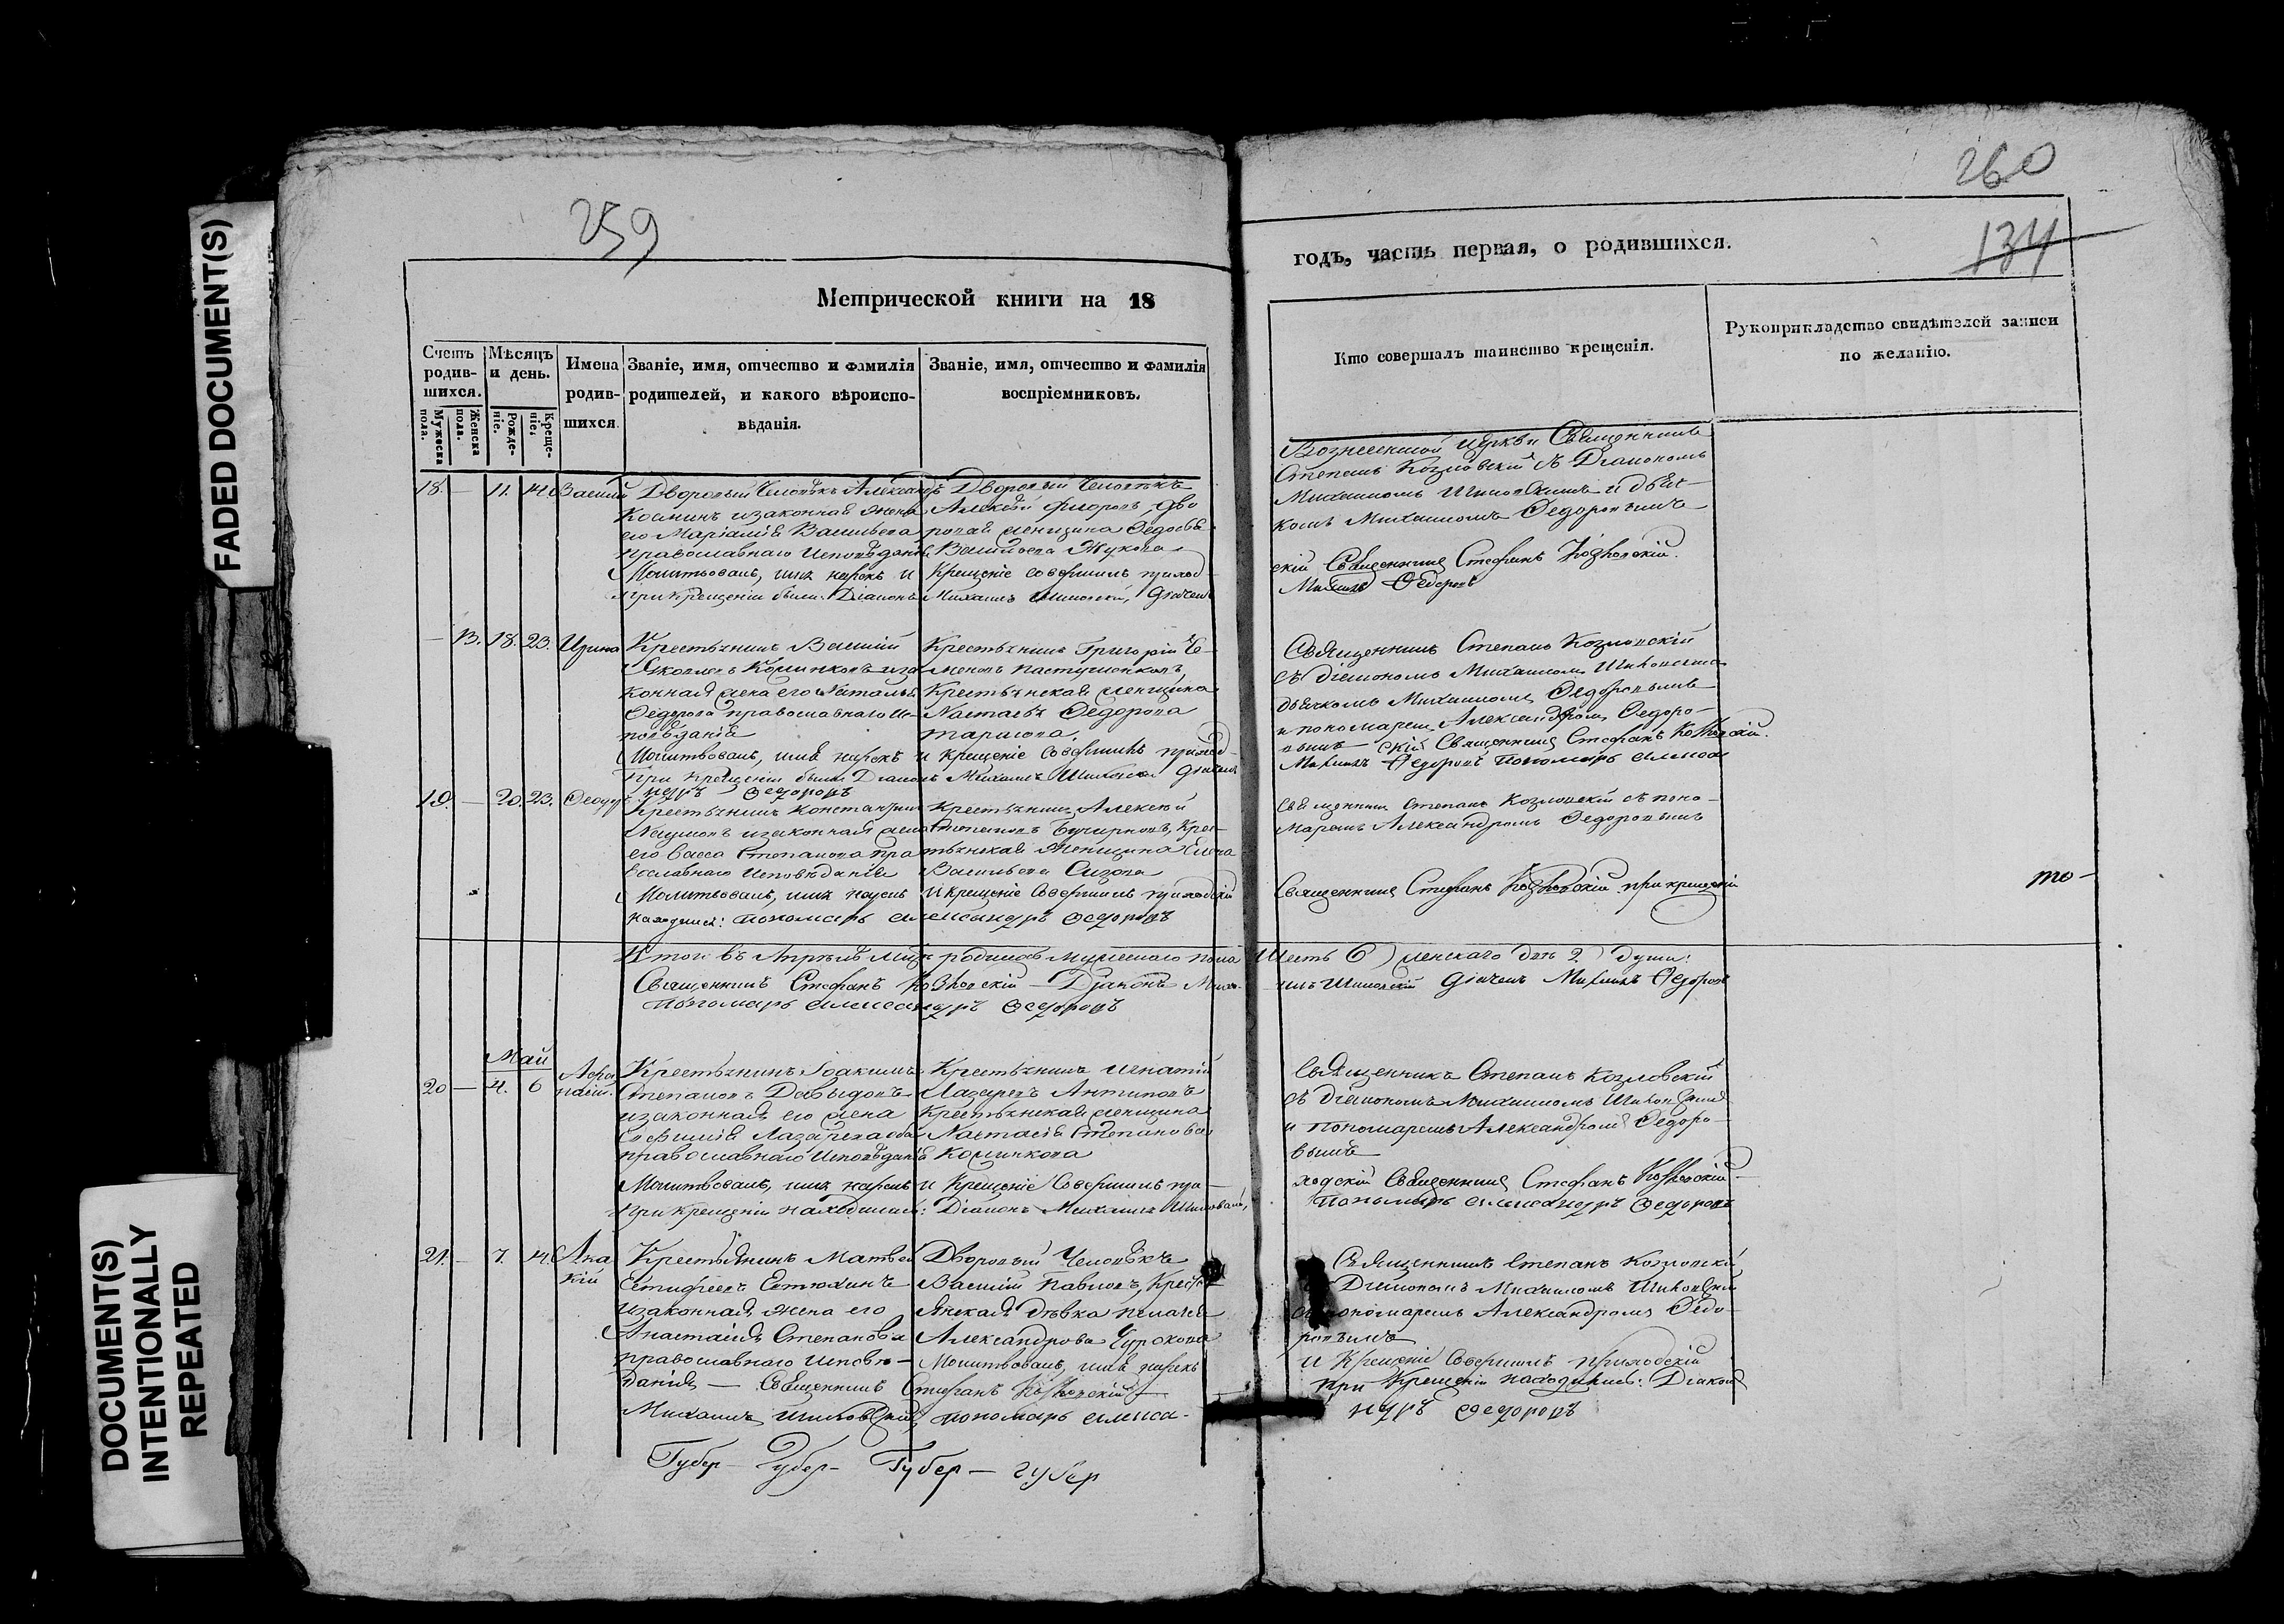 FADED DOCUMENT(S)
DOCUMENT(S)
INTENTIONALLY
REPEATED
259
Метрической книги на 18
Счетъ родив- шихся.
Мужеска пола.
Женска пола.
Мѣсяцъ и день.
Рожде- ніе.
Креще- ніе.
Имена родив- шихся.
Званіе, имя, отчество и фамилія родителей, и какого вѣроиспо- вѣданія.
Званіе, имя, отчество и фамилія воспріемниковъ.
18. — 11. 14.
Дворовый Человѣкъ Александръ
Косминъ изаконная жена
его Васильева
православнаго Исповѣданія
Молитвовалъ, имя нарекъ и
При крещеніи были: Діаконъ
Дворовый Человѣкъ
Алексѣй дво
ровая женщина Федосья
Васильева Жукова
Крещеніе совершилъ приход-
Михаилъ
— 13. 18. 23. Ирина
Крестьянинъ Василій
Яковлевъ изa
конная жена его Наталья
Федорова православнаго Ис-
повѣданія
Молитвовалъ, имя нарекъ
При крещеніи были Діаконъ
ндръ Федоровъ
Крестьянинъ Григорій Се-
меновъ
Крестьянская женщина
Настасья Федорова
и крещеніе совершилъ приход-
Михаилъ
19. — 20. 23.
Крестьянинъ Константинъ
Наумовъ изаконная жена
его Васса Степанова пра
вославнаго Исповѣданія
Молитвовалъ, имя нарекъ
находился: пономарь Александръ Федоровъ
Крестьянинъ Алексѣй
Крес-
тьянская женщина Елена
Васильева
И крещеніе совершилъ приходскій
Итого въ Апрѣлѣ родилось мужескаго пола
Священникъ Стефанъ Козловскій — Діаконъ Миха-
Пономарь Александръ Федоровъ
Май
20 — 4. 6 Афа
насій.
Крестьянинъ Іоакимъ
Степановъ Давыдовъ
изаконная его жена
Евфимія Лазарева оба
православнаго Исповѣданія
Молитвовалъ, имя нарекъ
При крещеніи находились:
Крестьянинъ Игнатій
Лазаревъ Антиповъ
Крестьянская женщина
Настасія Степанова
И Крещеніе Совершилъ при-
Діаконъ Михаилъ
21. — 7. 14. Ака
кій
Крестьянинъ Матвей
изаконная жена его
Анастасія Степанова
православнаго Исповѣ-
данія — Священникъ Стефанъ Козловскій
Михаилъ пономарь Алекса-
Дворовый Человѣкъ
Василій Павловъ, Кресть
янская дѣвка Пелагея
Александрова
Молитвовалъ, имя нарекъ
Губер — Губер — Губер — губер
260
134
годъ, часть первая, о родившихся.
Кто совершалъ таинство крещенія.
Рукоприкладство свидѣтелей записи по желанію.
Вознесенской Церкви Священникъ
Степанъ Козловскій съ Діакономъ
Михаиломъ и дьяч-
комъ Михаиломъ Федоровымъ
скій Священникъ Стефанъ Козловскій.
Михаилъ Федоровъ
Священникъ Степанъ Козловскій
съ діакономъ Михаиломъ
дьячкомъ Михаиломъ Федоровымъ
и пономаремъ Александромъ Федоро-
вымъ
скій Священникъ Стефанъ Козловскій.
Михаилъ Федоровъ пономарь Алекса
Священникъ Степанъ Козловскій съ поно-
маремъ Александромъ Федоровымъ
Священникъ Стефанъ Козловскій при крещеніи
то-
Шесть 6) женскаго двѣ 2) души:
илъ Михаилъ Федоровъ
Священникъ Степанъ Козловскій
съ діакономъ Михаиломъ
и пономаремъ Александромъ Федоро-
вымъ
ходскій Священникъ Стефанъ Козловскій
пономарь Александръ Федоровъ
Священникъ Степанъ Козловскій
Діакономъ Михаиломъ
пономаремъ Александромъ Федо-
ровымъ
и Крещеніе Совершилъ приходскій
при Крещеніи находились: Діаконъ
ндръ Федоровъ